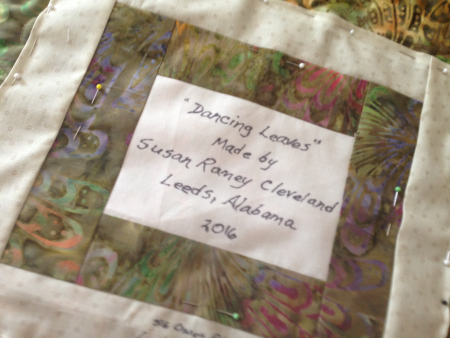 "Dancing Leaves"
Made by
Susan Raney Cleveland
Leeds, Alabama
2016